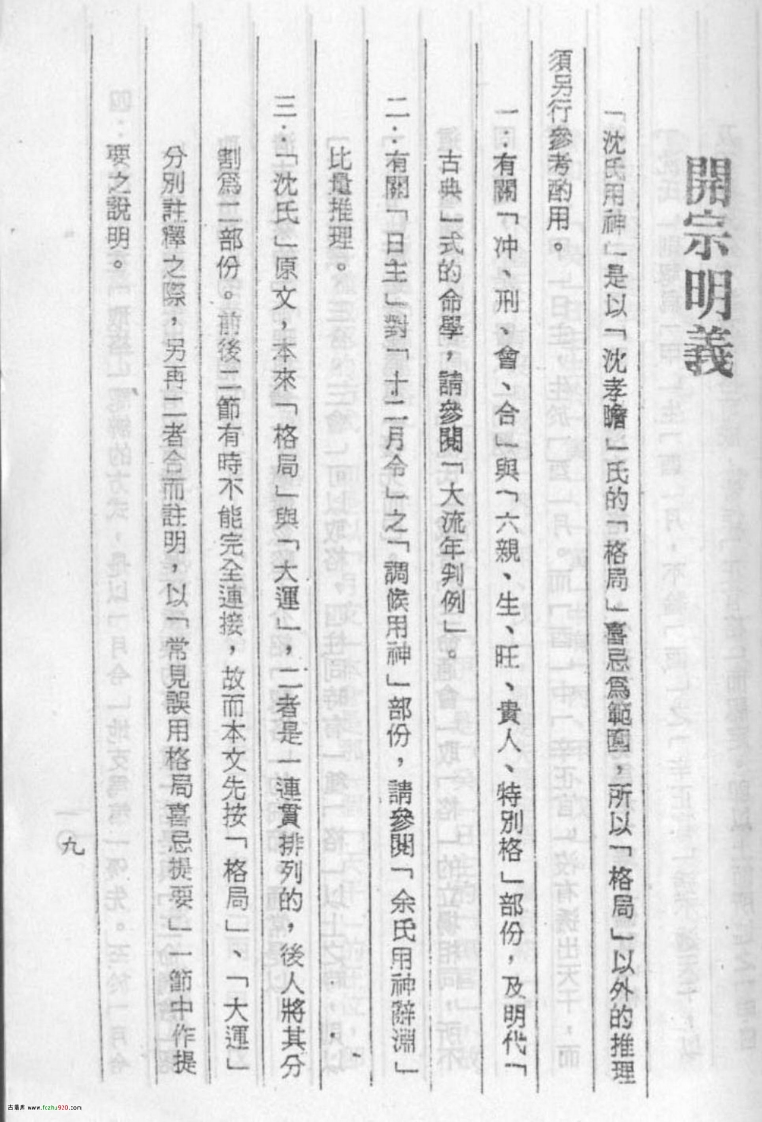 開宗明義
「沈氏用神」是以「沈孝瞻」氏的「格局」喜忌爲範圍，所以「格局」以外的推理
須另行參考酌用。
一：有關「冲、刑、會、合」與「六親、生、旺、貴人、特別格」部份，及明代「
古典」式的命學，請參閱「大流年判例」。
二：有關「日主」對「十二月令」之「調候用神」部份，請參閱「余氏用神辭淵」
比量推理。
三：「沈氏」原文，本來「格局」與「大運」，二者是一連貫排列的，後人將其分
割爲二部份。前後二節有時不能完全連接，故而本文先按「格局」、「大運」
分別註釋之際，另再二者合而註明，以「常見誤用格局喜忌提要」一節中作提
要之說明。
九
www.fozhu920.com